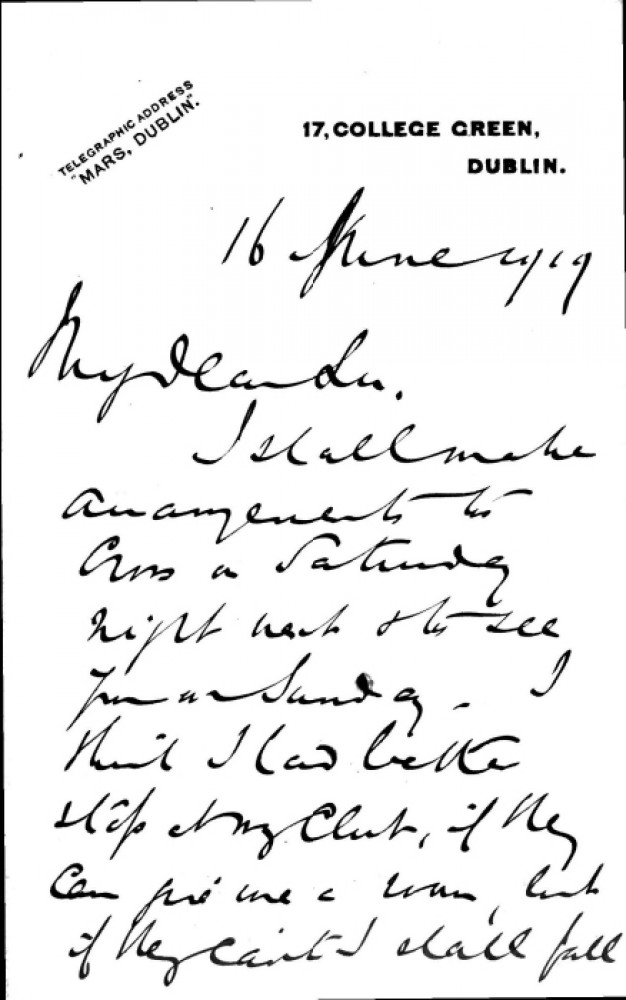 TELEGRAPHIC ADDRESS
"MARS, DUBLIN."
17, COLLEGE GREEN,
DUBLIN.
16 June 1919
My dear Sir.
I shall make
arrangements to
cross on Saturday
night next & to see
you on Sunday. I
think I had better
stop at my Club, if they
can give me a room, but
if they can't I shall fall